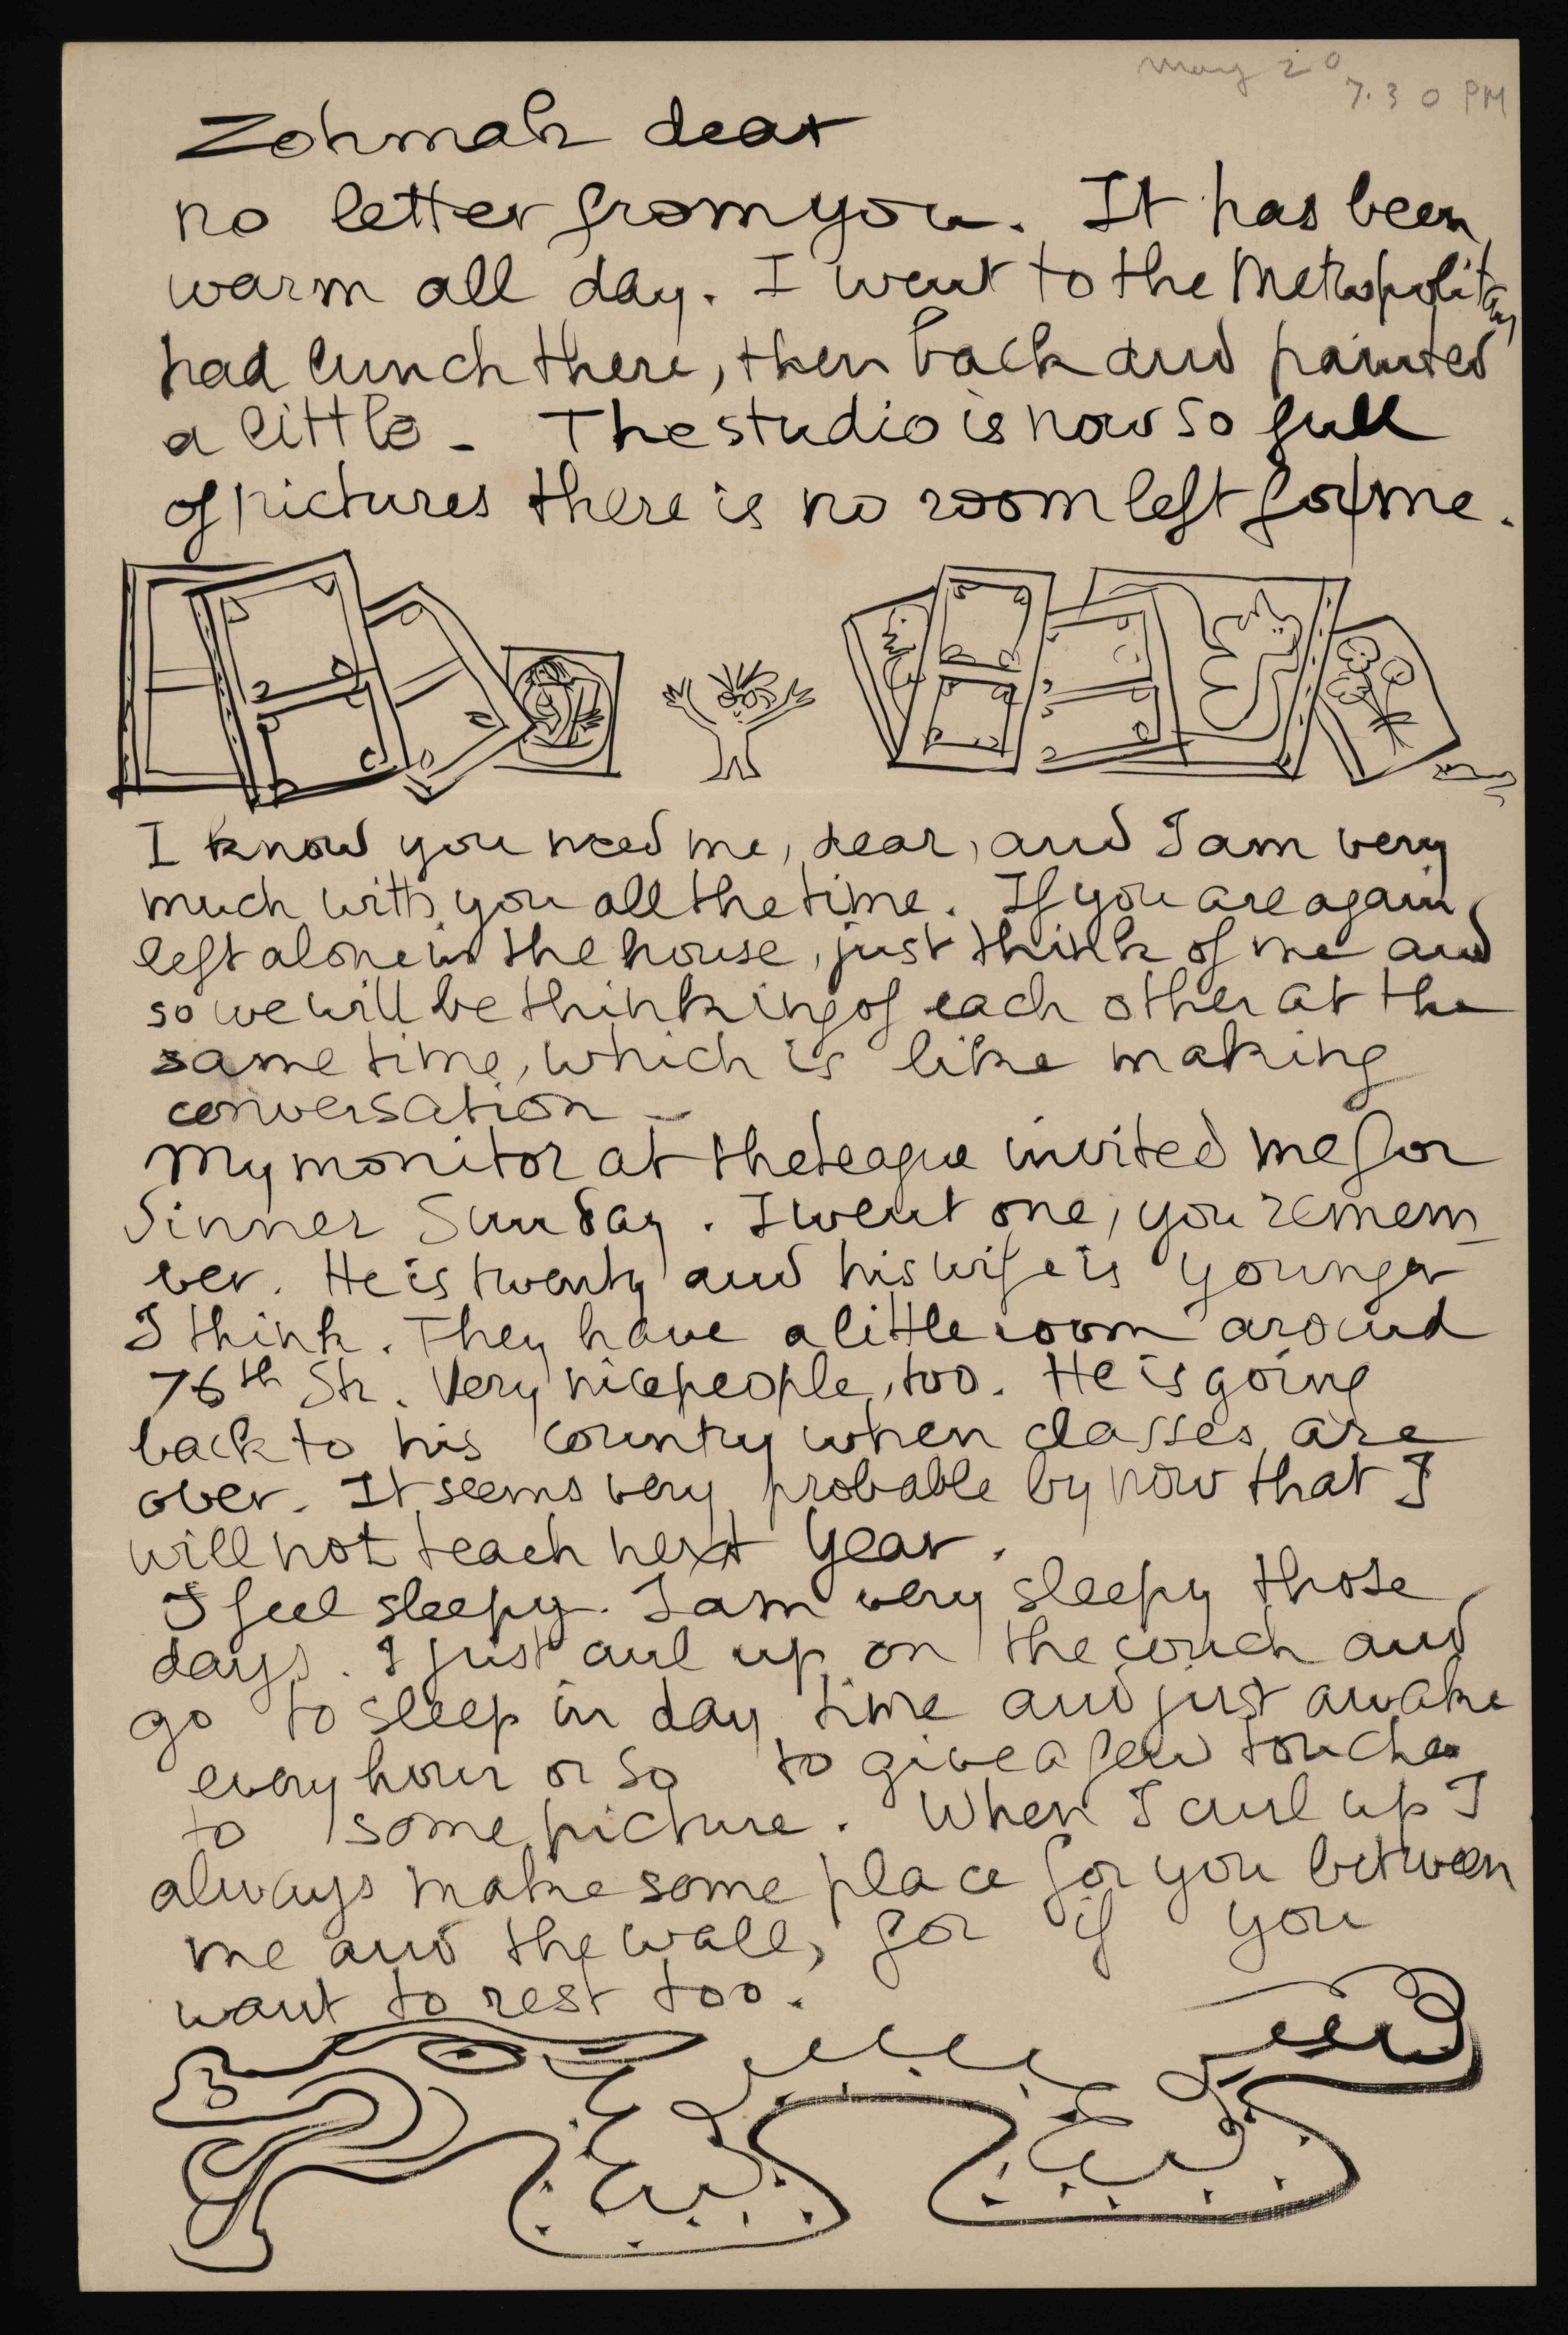 May 20
7.30 PM
Zohmah dear
no letter from you. It has been
warm all day. I went to the Metropolitan
had lunch there, then back and painted
a little - The studio is now so full
of pictures there is no room left for me.
I know you need me, dear, and I am very
much with you all the time. If you are again
left alone in the house, just think of me and
so we will be thinking of each other at the
same time, which is like making
conversation -
My monitor at the League invited me for
dinner Sunday. I went one, you remem
ber. He is twenty and his wife is younger
I think. They have a little room around
76th Str. Very nice people, too. He is going
back to his country when classes are
over. It seems very probable by now that I
will not teach next year.
I feel sleepy. I am very sleepy those
days. I just curl up on the couch and
go to sleep in day time and just awake
every hour or so to give a few touches
to some picture. When I curl up I
always make some place for you between
me and the wall, for if you
want to rest too.